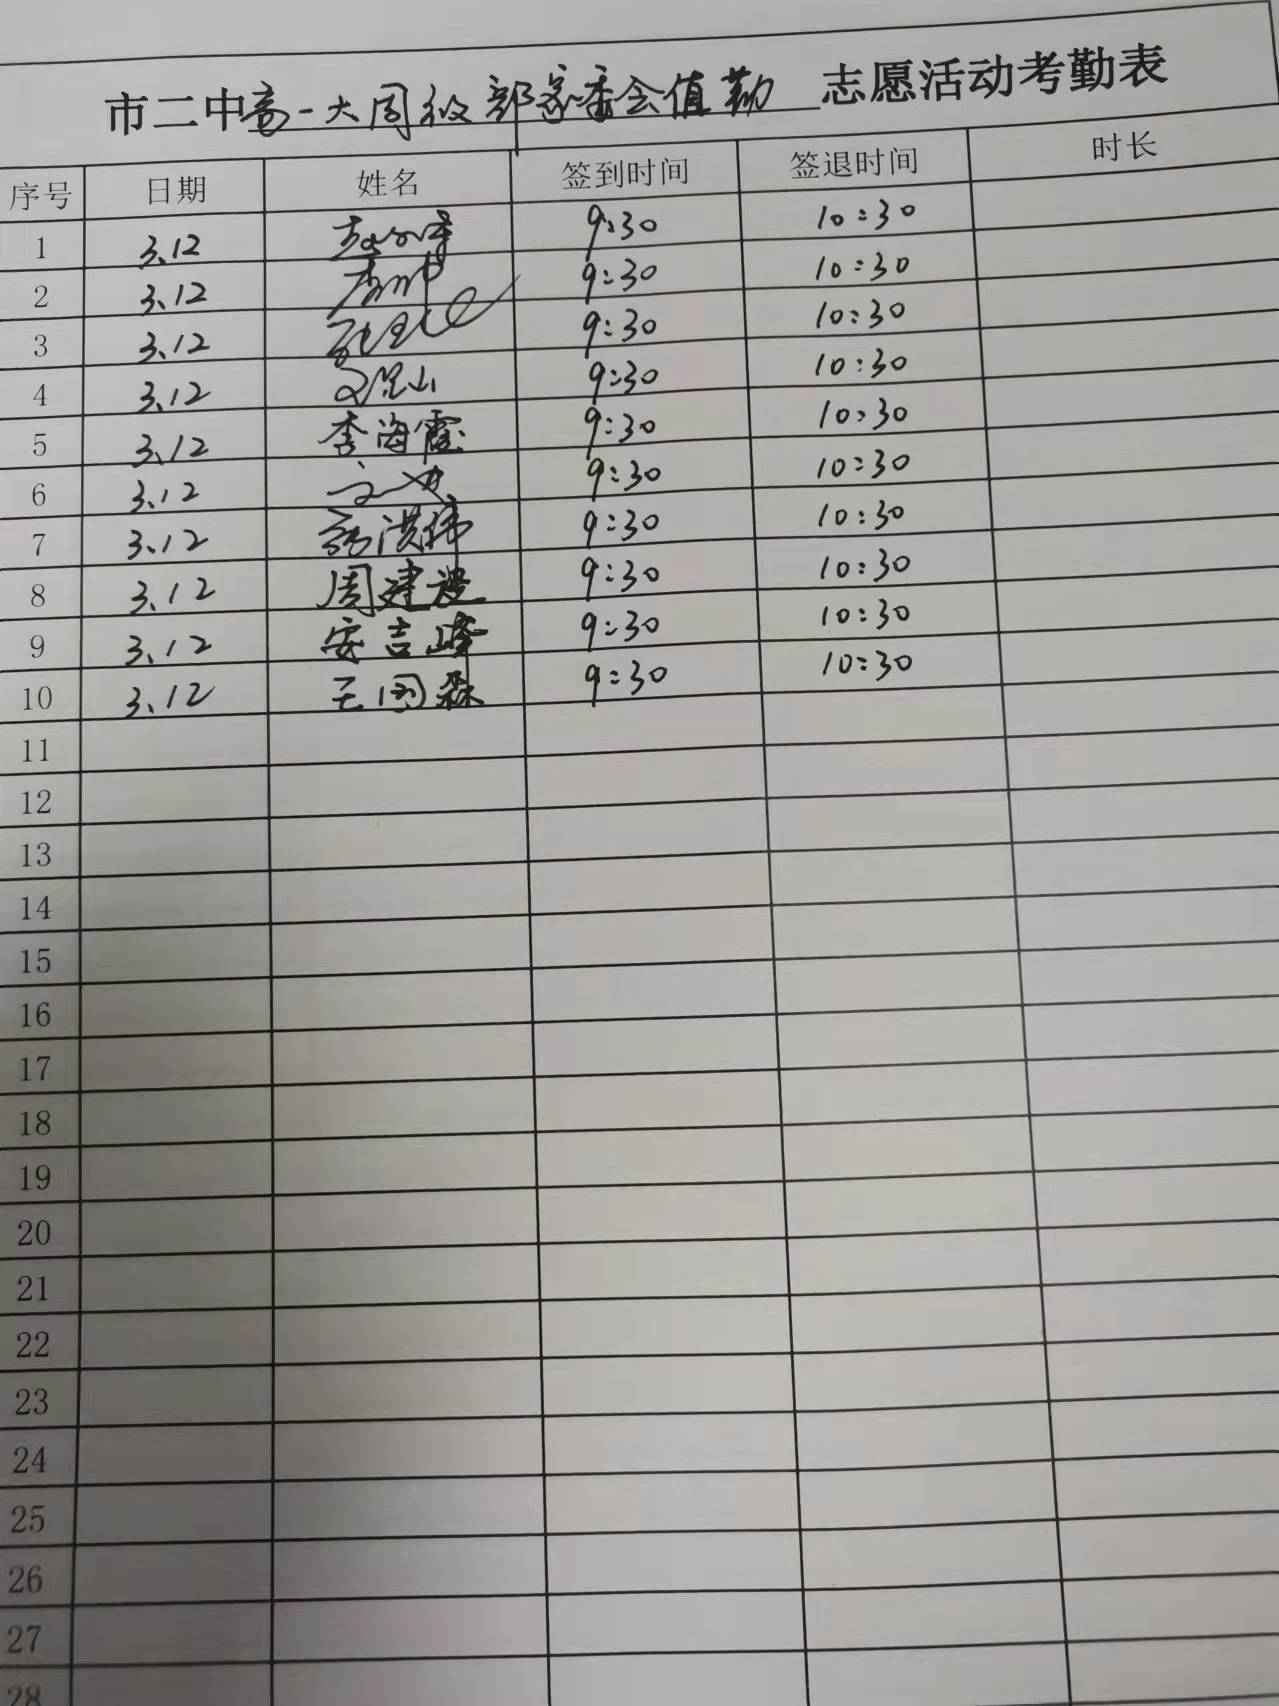 市二中高一大同级部家委会值勤志愿活动考勤表
序号 日期 姓名 签到时间 签退时间 时长
1 3.12 9:30 10:30
2 3.12 9:30 10:30
3 3.12 9:30 10:30
4 3.12 9:30 10:30
5 3.12 李海霞 9:30 10:30
6 3.12 9:30 10:30
7 3.12 洪伟 9:30 10:30
8 3.12 周建设 9:30 10:30
9 3.12 安吉峰 9:30 10:30
10 3.12 王国森 9:30 10:30
11
12
13
14
15
16
17
18
19
20
21
22
23
24
25
26
27
28